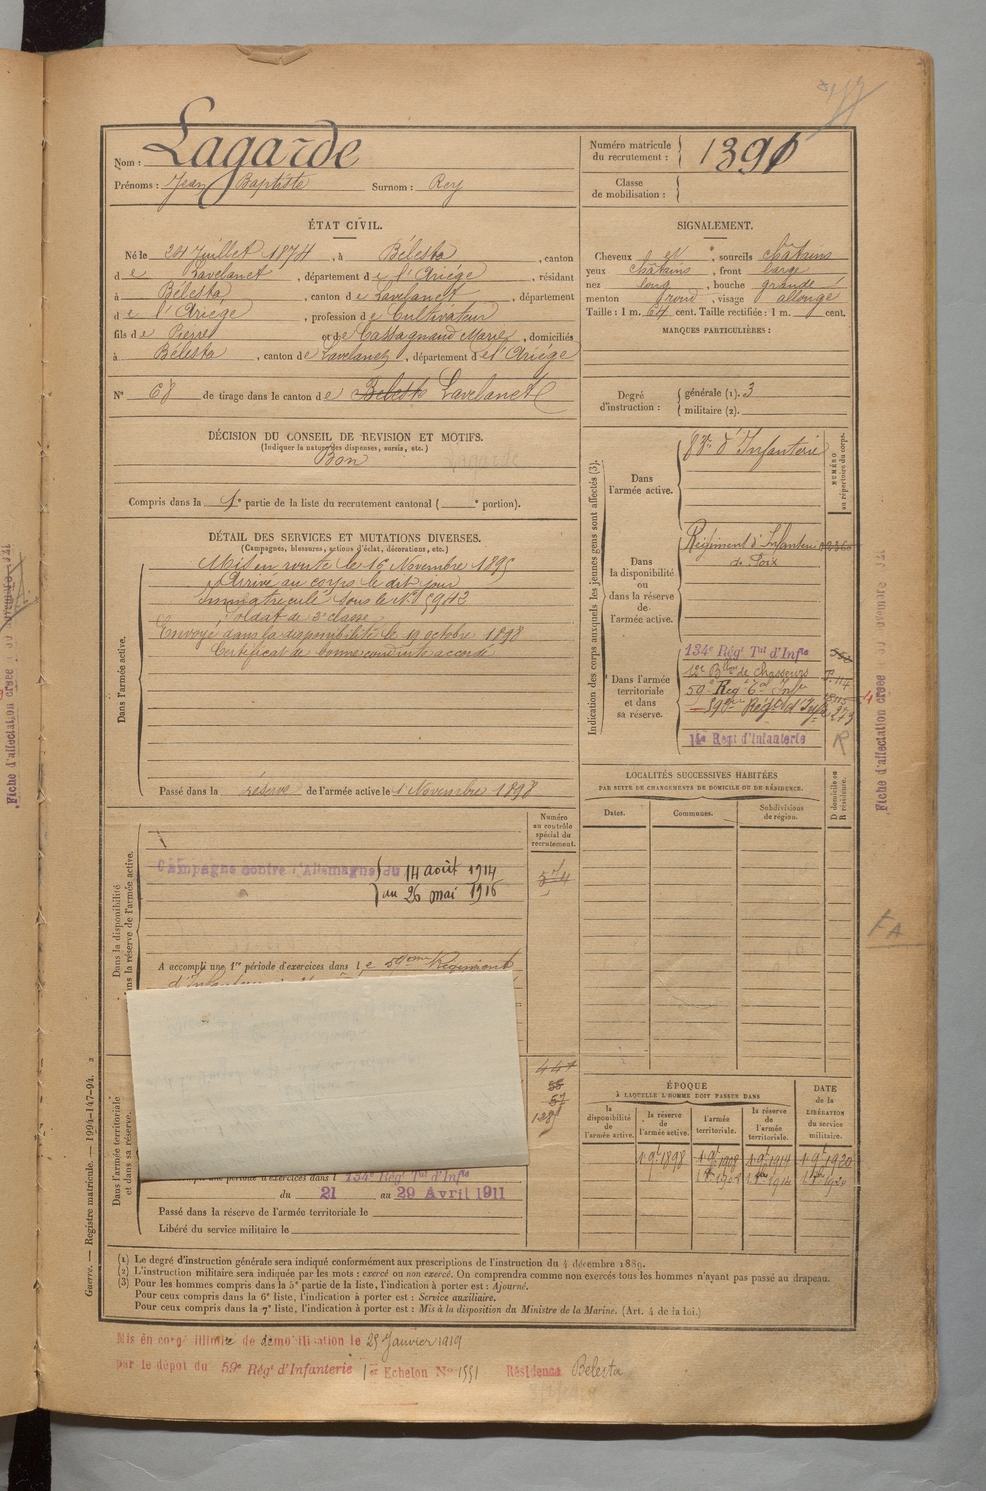 Nom : Lagarde
Prénoms : Jean Baptiste Surnom : Rey
Numéro matricule du recrutement : 1391
Classe de mobilisation :
ÉTAT CIVIL.
Né le 24 Juillet 1874, à Bélesta, canton
de Lavelanet, département de l'Ariége, résidant
à Bélesta, canton de Lavelanet, département
de l'Ariége, profession de Cultivateur
fils de Pierre et de Castagnaud Marie, domiciliés
à Bélesta, canton de Lavelanet, département de l'Ariége
N° 68 de tirage dans le canton de Bélesta Lavelanet
SIGNALEMENT.
Cheveux et, sourcils châtains
yeux châtains, front large
nez long, bouche grande
menton rond, visage allongé
Taille : 1 m. 64 cent. Taille rectifiée : 1 m. cent.
MARQUES PARTICULIÈRES :
Degré d'instruction : générale (1). 3
militaire (2).
DÉCISION DU CONSEIL DE REVISION ET MOTIFS.
(Indiquer la nature des dispenses, sursis, etc.)
Bon
Compris dans la 1e partie de la liste du recrutement cantonal ( e portion).
DÉTAIL DES SERVICES ET MUTATIONS DIVERSES.
(Campagnes, blessures, actions d'éclat, décorations, etc.)
Dans l'armée active.
Mis en route le 16 Novembre 1895
Arrivé au corps le dit jour
Immatriculé sous le N°
Soldat de 2e classe
Envoyé dans la disponibilité le 19 octobre 1898
Certificat de bonne conduite accordé
Passé dans la réserve de l'armée active le 1 Novembre 1898
Indication des corps auxquels les jeunes gens sont affectés (3).
NUMÉRO au répertoire du corps.
Dans l'armée active.
83e d'Infanterie
Dans la disponibilité ou dans la réserve de l'armée active.
Régiment d'Infanterie
de Foix
Dans l'armée territoriale et dans sa réserve.
134e Régt Tal d'Infie
12e Bon de Chasseurs
59e Regt Tal Infie
59e Régt d'Infie
14e Regt d'Infanterie
R
LOCALITÉS SUCCESSIVES HABITÉES
PAR SUITE DE CHANGEMENTS DE DOMICILE OU DE RÉSIDENCE.
Dates.
Communes.
Subdivisions de région.
D domicile ou R résidence.
Numéro au contrôle spécial du recrutement.
Dans la disponibilité
dans la réserve de l'armée active.
Campagne contre l'Allemagne du 14 août 1914
au 26 mai 1916
574
A accompli une 1re période d'exercices dans le 59ème Régiment
d'Infanterie
Dans l'armée territoriale et dans sa réserve.
447
55
57
128
134e Régt Tal d'Infie
du 21 au 29 Avril 1911
Passé dans la réserve de l'armée territoriale le
Libéré du service militaire le
ÉPOQUE
À LAQUELLE L'HOMME DOIT PASSER DANS
la disponibilité de l'armée active.
la réserve de l'armée active.
l'armée territoriale.
la réserve de l'armée territoriale.
DATE de la LIBÉRATION du service militaire.
1 9bre 1898
1 9bre 1908
1 9bre 1914
1 9bre 1920
(1) Le degré d'instruction générale sera indiqué conformément aux prescriptions de l'instruction du 4 décembre 1889.
(2) L'instruction militaire sera indiquée par les mots : exercé ou non exercé. On comprendra comme non exercés tous les hommes n'ayant pas passé au drapeau.
(3) Pour les hommes compris dans la 5e partie de la liste, l'indication à porter est : Ajourné.
Pour ceux compris dans la 6e liste, l'indication à porter est : Service auxiliaire.
Pour ceux compris dans la 7e liste, l'indication à porter est : Mis à la disposition du Ministre de la Marine. (Art. 4 de la loi.)
Guerre. — Registre matricule. — 1994-147-94.
Mis en congé illimité de démobilisation le 25 Janvier 1919
par le dépot du 59e Régt d'Infanterie 1er Echelon No 1551 Résidence Bélesta
Fiche d'affectation créée
FA